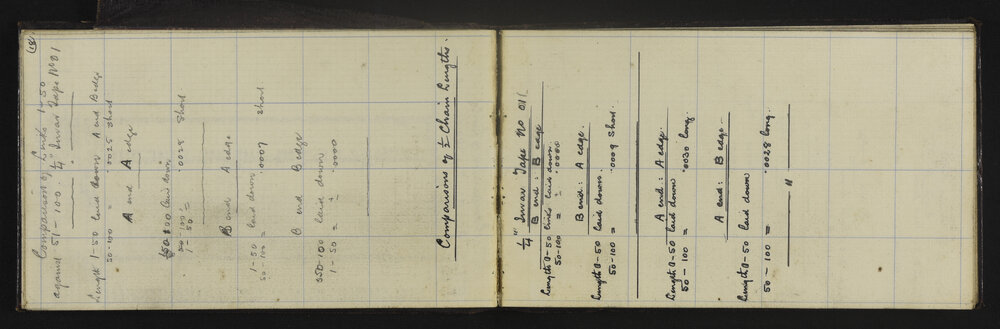 (18)
Comparison of Links 1-50
against 51-100. ¼" Invar Tape No 01
Length 1-50 laid down A end B edge
50-100 = .0028 Short
A end A edge
50-100 laid down
1-50 = .0028 Short
B end A edge
1-50 laid down
50-100 = .0007 Short
B end B edge
50-100 laid down
1-50 = ± .0000
Comparisons of ½ Chain Lengths.
¼" Invar Tape No 011
B end : B edge
Length 0-50 links laid down.
50-100 = ± .0000
B end : A edge.
Length 0-50 laid down.
50-100 = .0009 Short.
A end : A edge.
Length 0-50 laid down
50-100 = .0030 long.
A end : B edge.
Length 0-50 laid down
50-100 = .0028 long.
"